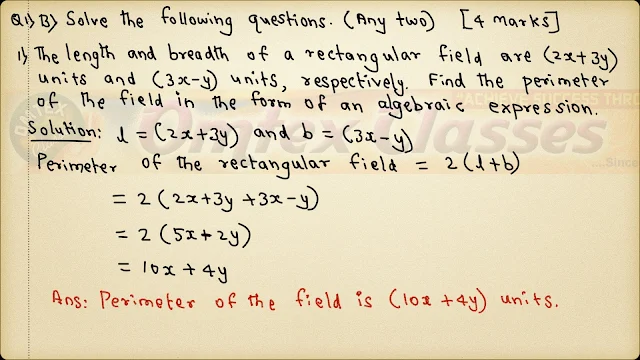 Q1) B) Solve the following questions. (Any two) [4 Marks]
1) The length and breadth of a rectangular field are (2x+3y)
units and (3x-y) units, respectively. Find the perimeter
of the field in the form of an algebraic expression.
Solution: l = (2x+3y) and b = (3x-y)
Perimeter of the rectangular field = 2(l+b)
= 2(2x+3y+3x-y)
= 2(5x+2y)
= 10x+4y
Ans: Perimeter of the field is (10x+4y) units.
OMTEX
Omtex Classes
ACHIEVING SUCCESS THRO
...Since